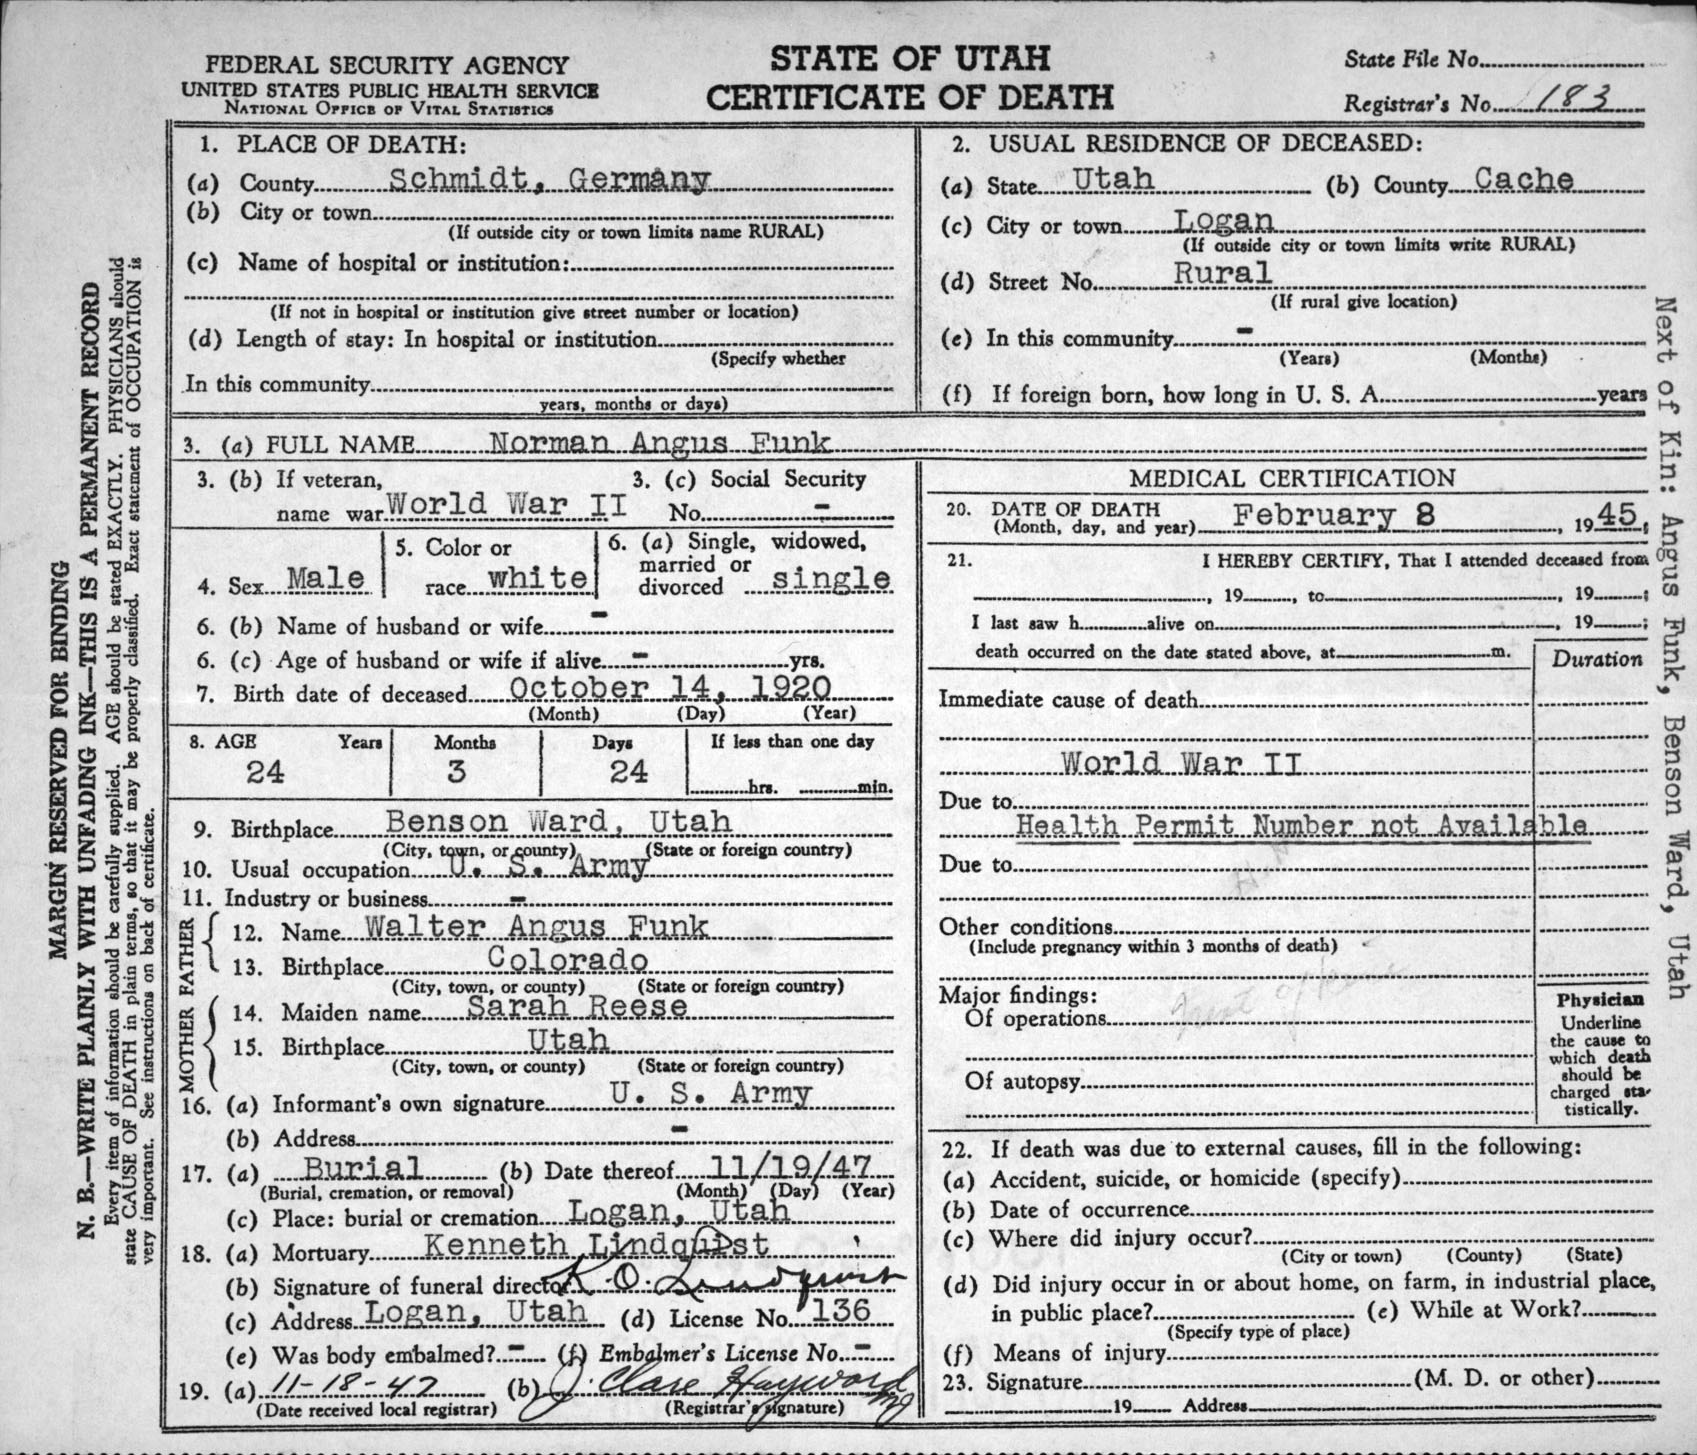 FEDERAL SECURITY AGENCY
UNITED STATES PUBLIC HEALTH SERVICE
NATIONAL OFFICE OF VITAL STATISTICS
STATE OF UTAH
CERTIFICATE OF DEATH
State File No.
Registrar's No. 183
MARGIN RESERVED FOR BINDING
N. B.—WRITE PLAINLY WITH UNFADING INK—THIS IS A PERMANENT RECORD
Every item of information should be carefully supplied. AGE should be stated EXACTLY. PHYSICIANS should
state CAUSE OF DEATH in plain terms, so that it may be properly classified. Exact statement of OCCUPATION is
very important. See instructions on back of certificate.
1. PLACE OF DEATH:
(a) County Schmidt, Germany
(b) City or town
(If outside city or town limits name RURAL)
(c) Name of hospital or institution:
(If not in hospital or institution give street number or location)
(d) Length of stay: In hospital or institution
(Specify whether
In this community
years, months or days)
2. USUAL RESIDENCE OF DECEASED:
(a) State Utah (b) County Cache
(c) City or town Logan
(If outside city or town limits write RURAL)
(d) Street No. Rural
(If rural give location)
(e) In this community -
(Years) (Months)
(f) If foreign born, how long in U. S. A. years
3. (a) FULL NAME Norman Angus Funk
3. (b) If veteran, 3. (c) Social Security
name war World War II No. -
4. Sex Male
5. Color or
race white
6. (a) Single, widowed,
married or
divorced single
6. (b) Name of husband or wife -
6. (c) Age of husband or wife if alive - yrs.
7. Birth date of deceased October 14, 1920
(Month) (Day) (Year)
8. AGE Years Months Days If less than one day
24 3 24 hrs. min.
9. Birthplace Benson Ward, Utah
(City, town, or county) (State or foreign country)
10. Usual occupation U. S. Army
11. Industry or business -
FATHER
12. Name Walter Angus Funk
13. Birthplace Colorado
(City, town, or county) (State or foreign country)
MOTHER
14. Maiden name Sarah Reese
15. Birthplace Utah
(City, town, or county) (State or foreign country)
16. (a) Informant's own signature U. S. Army
(b) Address -
17. (a) Burial (b) Date thereof 11/19/47
(Burial, cremation, or removal) (Month) (Day) (Year)
(c) Place: burial or cremation Logan, Utah
18. (a) Mortuary Kenneth Lindquist
(b) Signature of funeral director K. O. Lindquist
(c) Address Logan, Utah (d) License No. 136
(e) Was body embalmed? - (f) Embalmer's License No. -
19. (a) 11-18-47 (b) J. Clare Hayward MD
(Date received local registrar) (Registrar's signature)
MEDICAL CERTIFICATION
20. DATE OF DEATH
(Month, day, and year) February 8, 1945.
21. I HEREBY CERTIFY, That I attended deceased from
, 19 , to , 19 ;
I last saw h alive on , 19 ;
death occurred on the date stated above, at m.
Duration
Immediate cause of death
World War II
Due to
Health Permit Number not Available
Due to
Other conditions
(Include pregnancy within 3 months of death)
Major findings:
Of operations
Of autopsy
Physician
Underline
the cause to
which death
should be
charged sta-
tistically.
22. If death was due to external causes, fill in the following:
(a) Accident, suicide, or homicide (specify)
(b) Date of occurrence
(c) Where did injury occur?
(City or town) (County) (State)
(d) Did injury occur in or about home, on farm, in industrial place,
in public place? (e) While at Work?
(Specify type of place)
(f) Means of injury
23. Signature (M. D. or other)
19 Address
Next of Kin: Angus Funk, Benson Ward, Utah